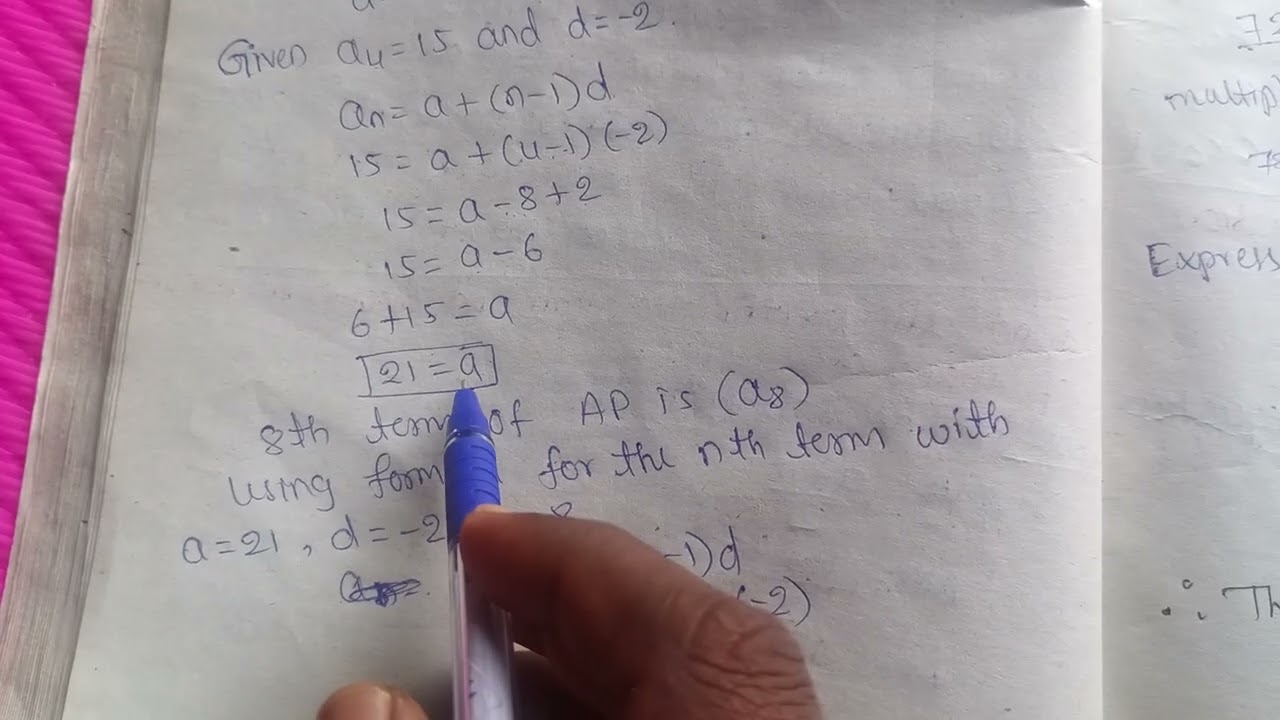 Given a4=15 and d=-2.
an= a+(n-1)d
15 = a+(4-1)(-2)
15= a-8+2
15= a-6
6+15=a
21=a
8th term of AP is (a8)
using for the nth term with
a=21, d=-2 8
-1)d
(-2)
multip
Express
∴ Th